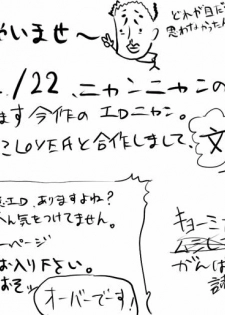 ゃいませ〜
どれが目だ
思わなかったん
/22、ニャンニャンの
ます今作のエロニャン。
こLOVERと合作しまして、
文
エロ、ありますよね?
へん気をつけてません。
ページ
お入り下さい。
おそッ
オーバーでーす!
キョーミ
がんは